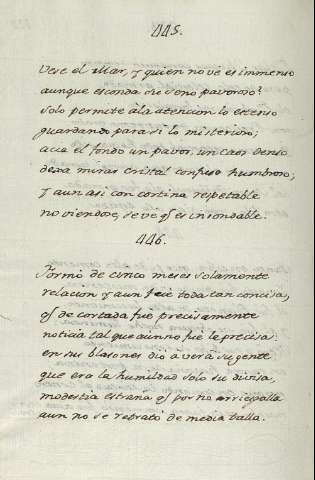 445.
Vese el Mar, y quien no ve es immenso
aunque esconda su seno pavoroso?
Solo permite à la atencion lo estenso
guardando para si lo misterioso;
acia el fondo un pavor, un caos denso
dexa mirar cristal confuso humbroso;
y aun asi con cortina respetable
no viendose, se ve q̃ es insondable.
446.
Formò de cinco meses solamente
relacion y aun fuè toda tan concisa,
q̃ de cortada fuè precisamente
noticia tal que aun no fuè la precisa:
en sus blasones dio à ver à su gente
que era la humildad solo su divisa,
modestia estraña q̃ por no
aun no se retratò de media talla.